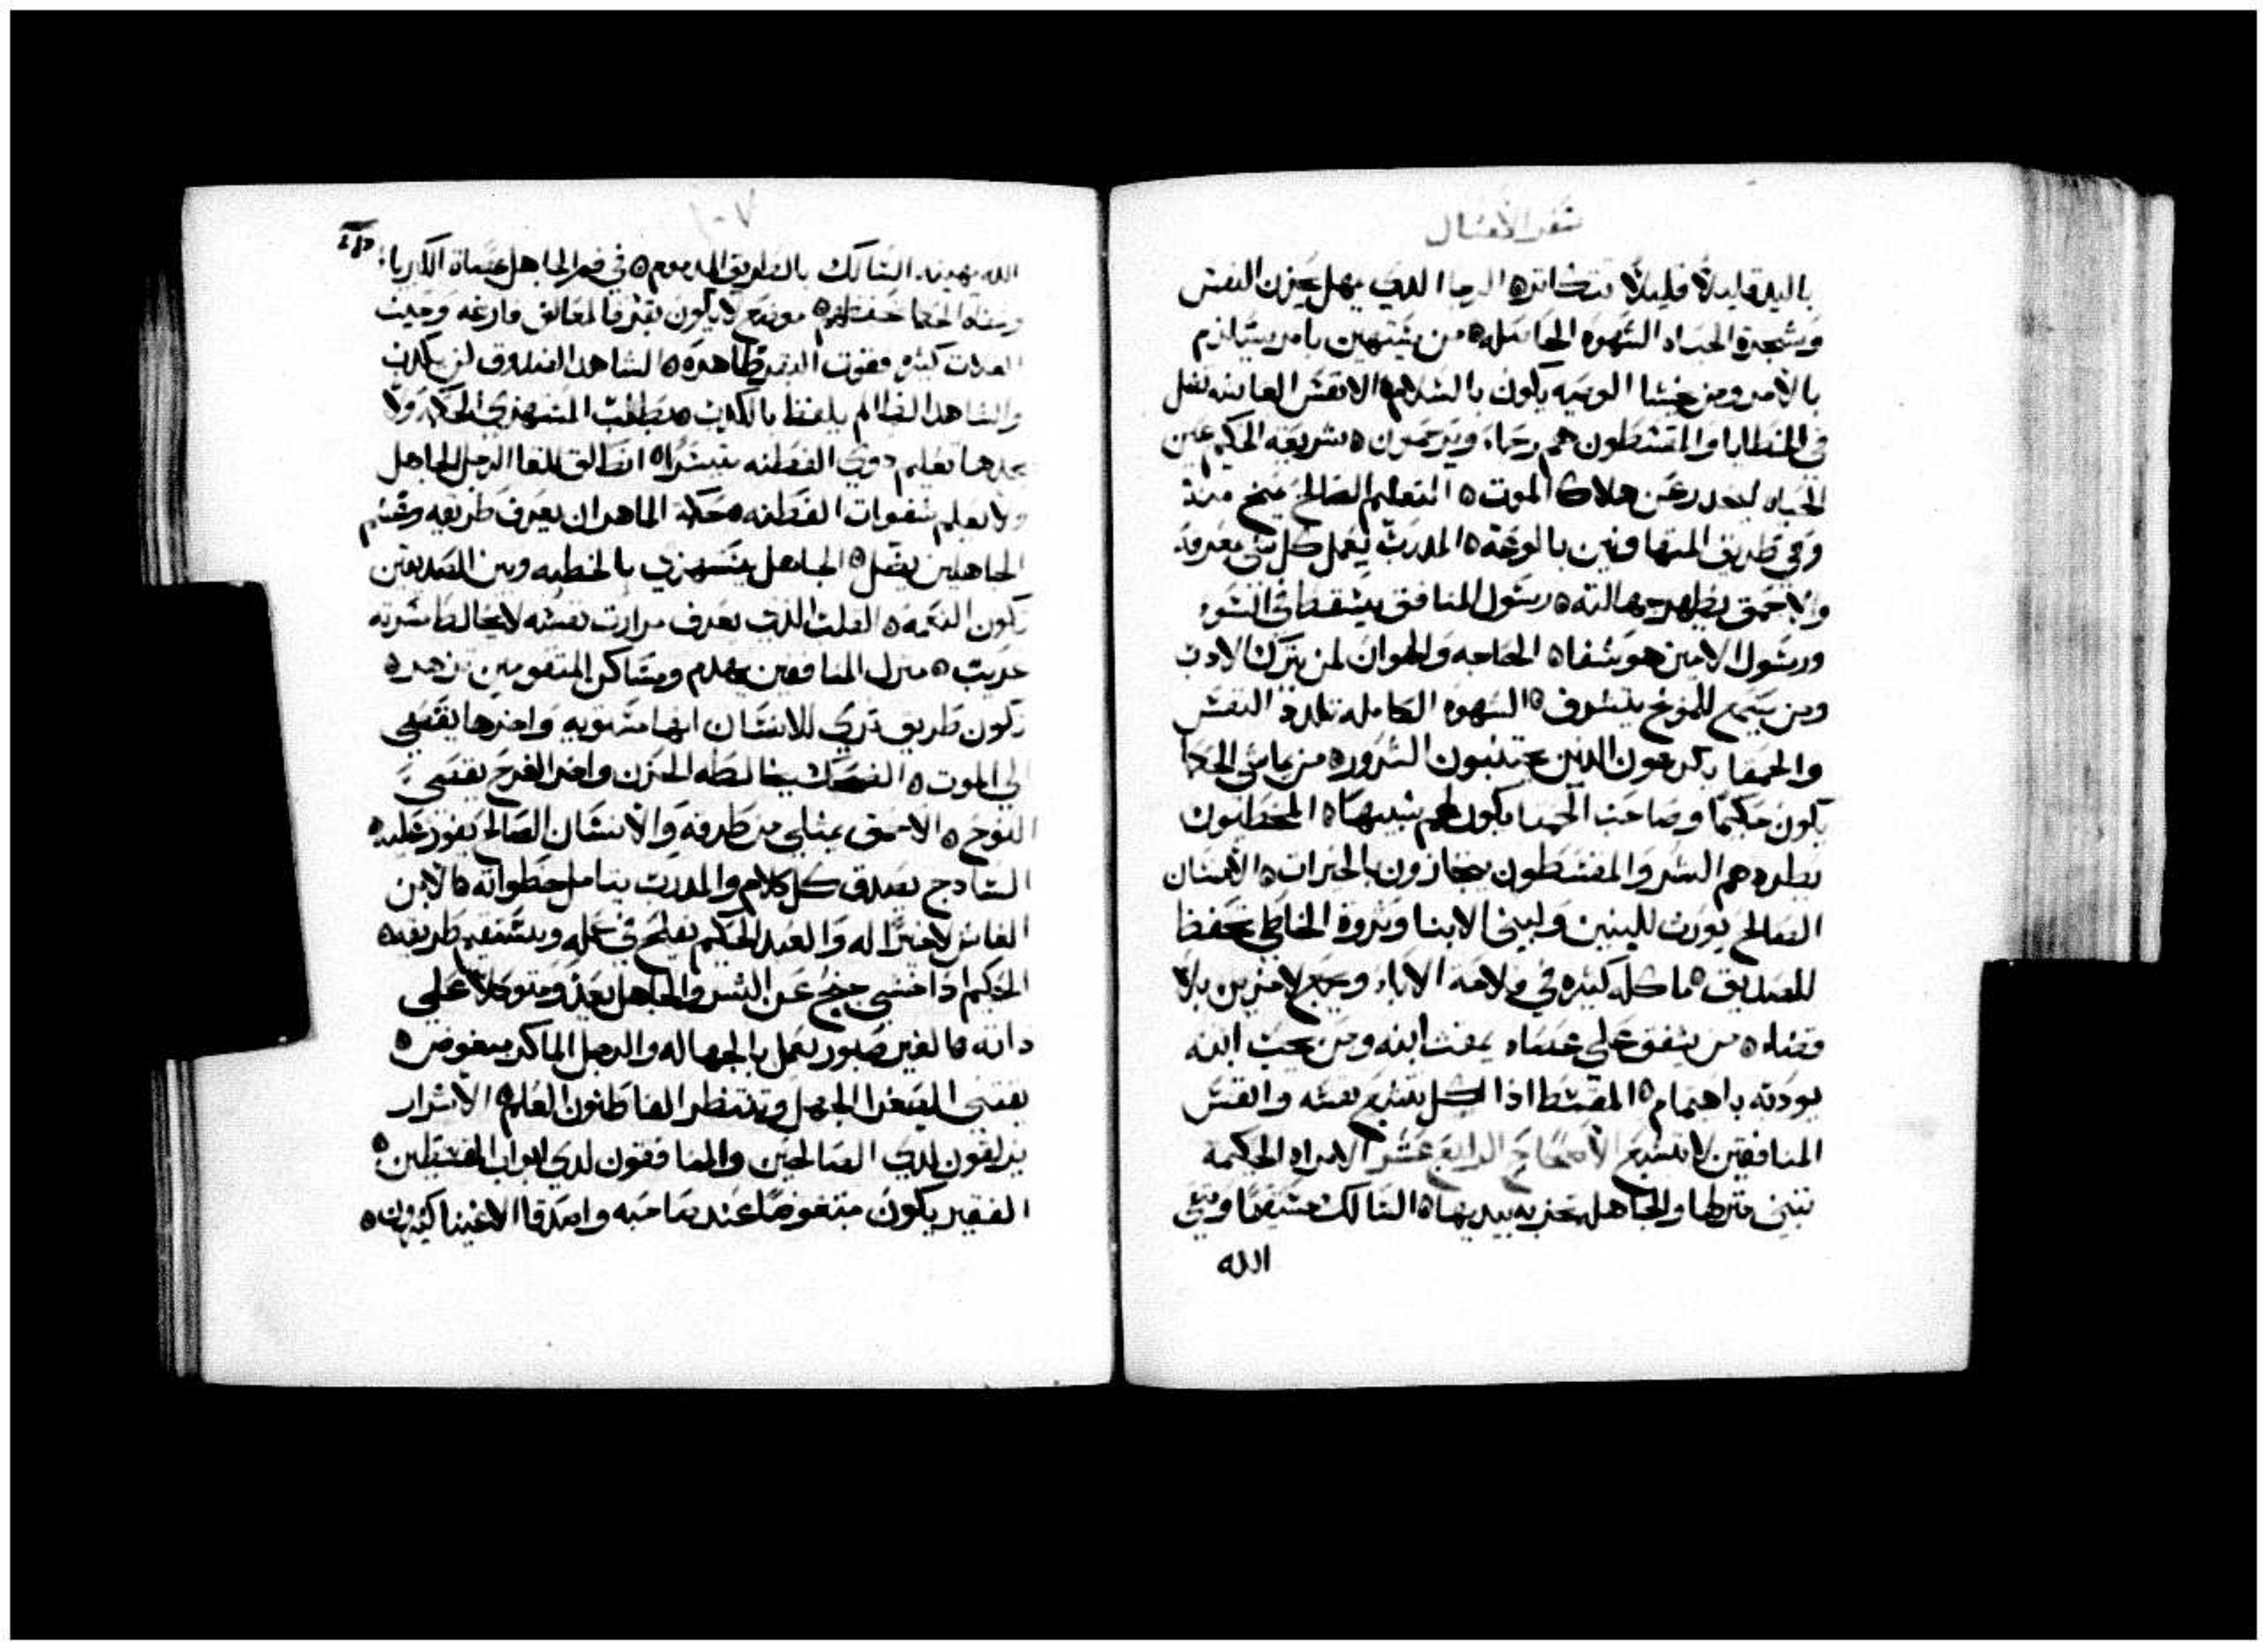 سفر الأمثال
باليد قليلاً قليلاً تتكاثر ٥ الرجا الذي يمهل يحزن النفس
وشجرة الحياه الشهوه الحاصله ٥ من يستهين بامر يستلزم
بالامر ومن خشا الوصيه يكون بالسلام ٥ الانفس العاشه تضل
في الخطايا والمقسطون هم رحماء ويرحمون ٥ شريعه الحكيم عين
الحياه ليحدر عن هلاك الموت ٥ التعليم الصالح يمنح منة
وفي طريق المتهاونين بالوغة ٥ المدرب يعمل كل شي بمعرفة
والاحمق يظهر جهالته ٥ رسول المنافق يسقط في السوء
ورسول الامين هو شفاه ٥ الحاجه والهوان لمن يترك الادب
ومن يسمع للموبخ يتشرف ٥ الشهوه الكامله تلدد النفس
والحمقا يكرهون الذين يجتنبون الشرور ٥ من ماشى الحكما
يكون حكيمًا وصاحب الحمقا يكون لهم شبيها ٥ المخطيون
يطردهم الشر والمقسطون يجازون بالخيرات ٥ الانسان
الصالح يورث للبنين ولبني الابنا وثروة الخاطي تحفظ
للصديق ٥ ماكله كثيره في فلاحة الاباء وتجمع لاخرين بلا
قضاء ٥ من يشفق على عصاه يمقت ابنه ومن يحب ابنه
يودبه باهتمام ٥ المقسط اذا اكل تشبع نفسه وانفس
المنافقين لا تشبع الأصحاح الرابع عشر الامراه الحكيمه
تبني منزلها والجاهله تخربه بيديها ٥ السالك مستقيمًا ومتقي
الله
١٠٧
الله يهينه السالك بالطريق المذموم ٥ في فم الجاهل عصاة الكبرياء
وشفاه الحكما تحفظهم ٥ موضع لا يكون بقر فالمعالف فارغه وحيث
الغلات كثيره فقوت البقر ظاهره ٥ الشاهد الصدوق لن يكذب
والشاهد الظالم يلفظ بالكذب ٥ يطلب المستهزي الحكمه ولا
يجدها تعليم ذوي الفطنه متيسرًا ٥ انطلق تلقا الرجل الجاهل
ولا يعلم شفوات الفطنه ٥ حكمة الماهر ان يعرف طريقه وغشم
الجاهلين يضل ٥ الجاهل يستهزي بالخطيه وبين الصديقين
تكون النعمه ٥ القلب الذي يعرف مرارت نفسه لا يخالط مسرته
غريب ٥ منزل المنافقين يهدم ومساكن المتقومين تزهر ٥
تكون طريق تري للانسان انها مستويه واخرها يفضي
الى الموت ٥ الضحك يخالطه الحزن واخر الفرح يفضي
النوح ٥ الاحمق يمتلي من طرقه والانسان الصالح يفوز عليه ٥
الساذج يصدق كل كلام والمدرب يتامل خطواته ٥ الابن
الغاش لا خيرًا له والعبد الحكيم يفلح في عمله ويستقيم طريقه ٥
الحكيم اذا خشي جنح عن الشر والجاهل يعبر ومتوكلاً على
داته ٥ الغير صبور يعمل بالجهاله والرجل الماكر مبغوض ٥
يقتني الصغرا الجهل وتنتظر الفاطنون العلم ٥ الاشرار
يزلقون لدي الصالحين والمنافقون لدي ابواب المقسطين ٥
الفقير يكون مبغوضًا عند صاحبه واصدقا الاغنيا كثيرون ٥